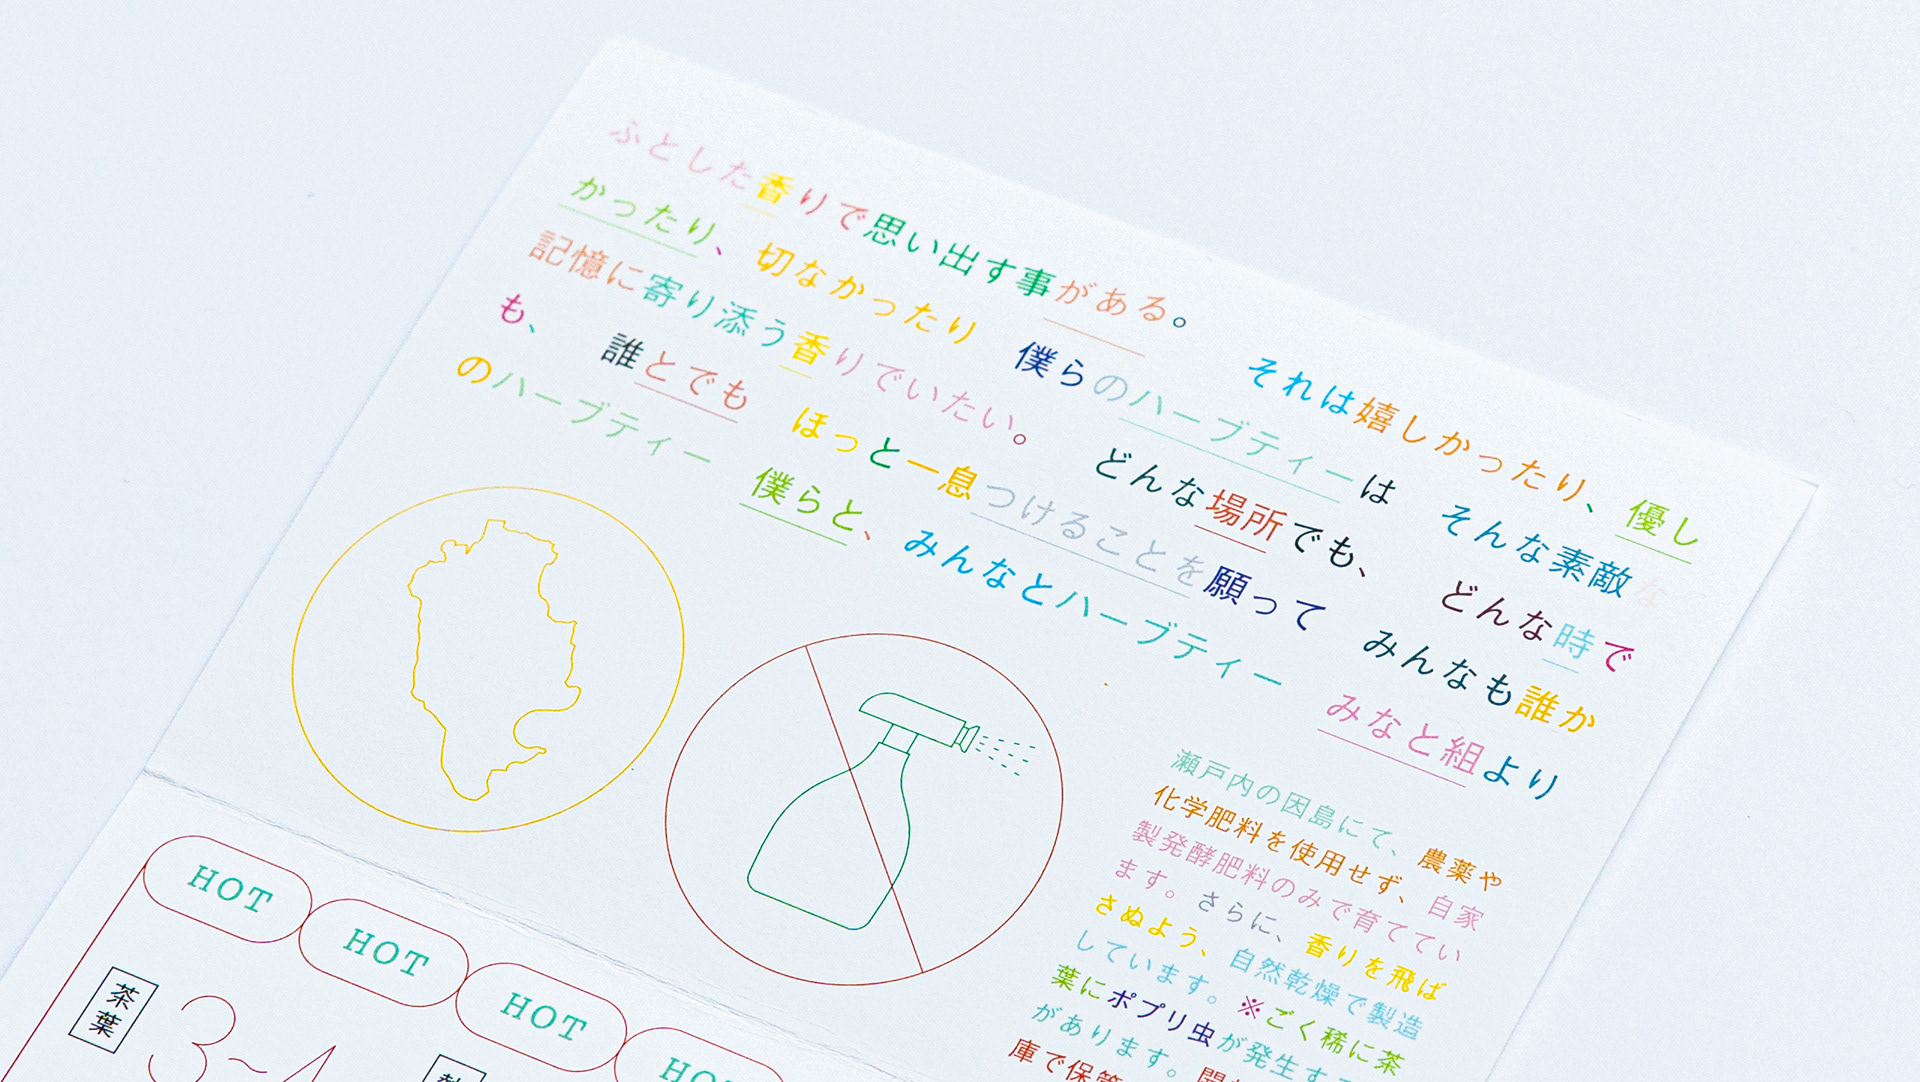 ふとした香りで思い出す事がある。　それは嬉しかったり、優し
かったり、切なかったり　僕らのハーブティーは　そんな素敵な
記憶に寄り添う香りでいたい。　どんな場所でも、　どんな時で
も、　誰とでも　ほっと一息つけることを願って　みんなも誰か
のハーブティー　僕らと、みんなとハーブティー　みなと組より
瀬戸内の因島にて、農薬や
化学肥料を使用せず、自家
製発酵肥料のみで育ててい
ます。さらに、香りを飛ば
さぬよう、自然乾燥で製造
しています。※ごく稀に茶
葉にポプリ虫が発生する
があります。開
庫で保管
HOT HOT HOT HOT
茶葉
3~4